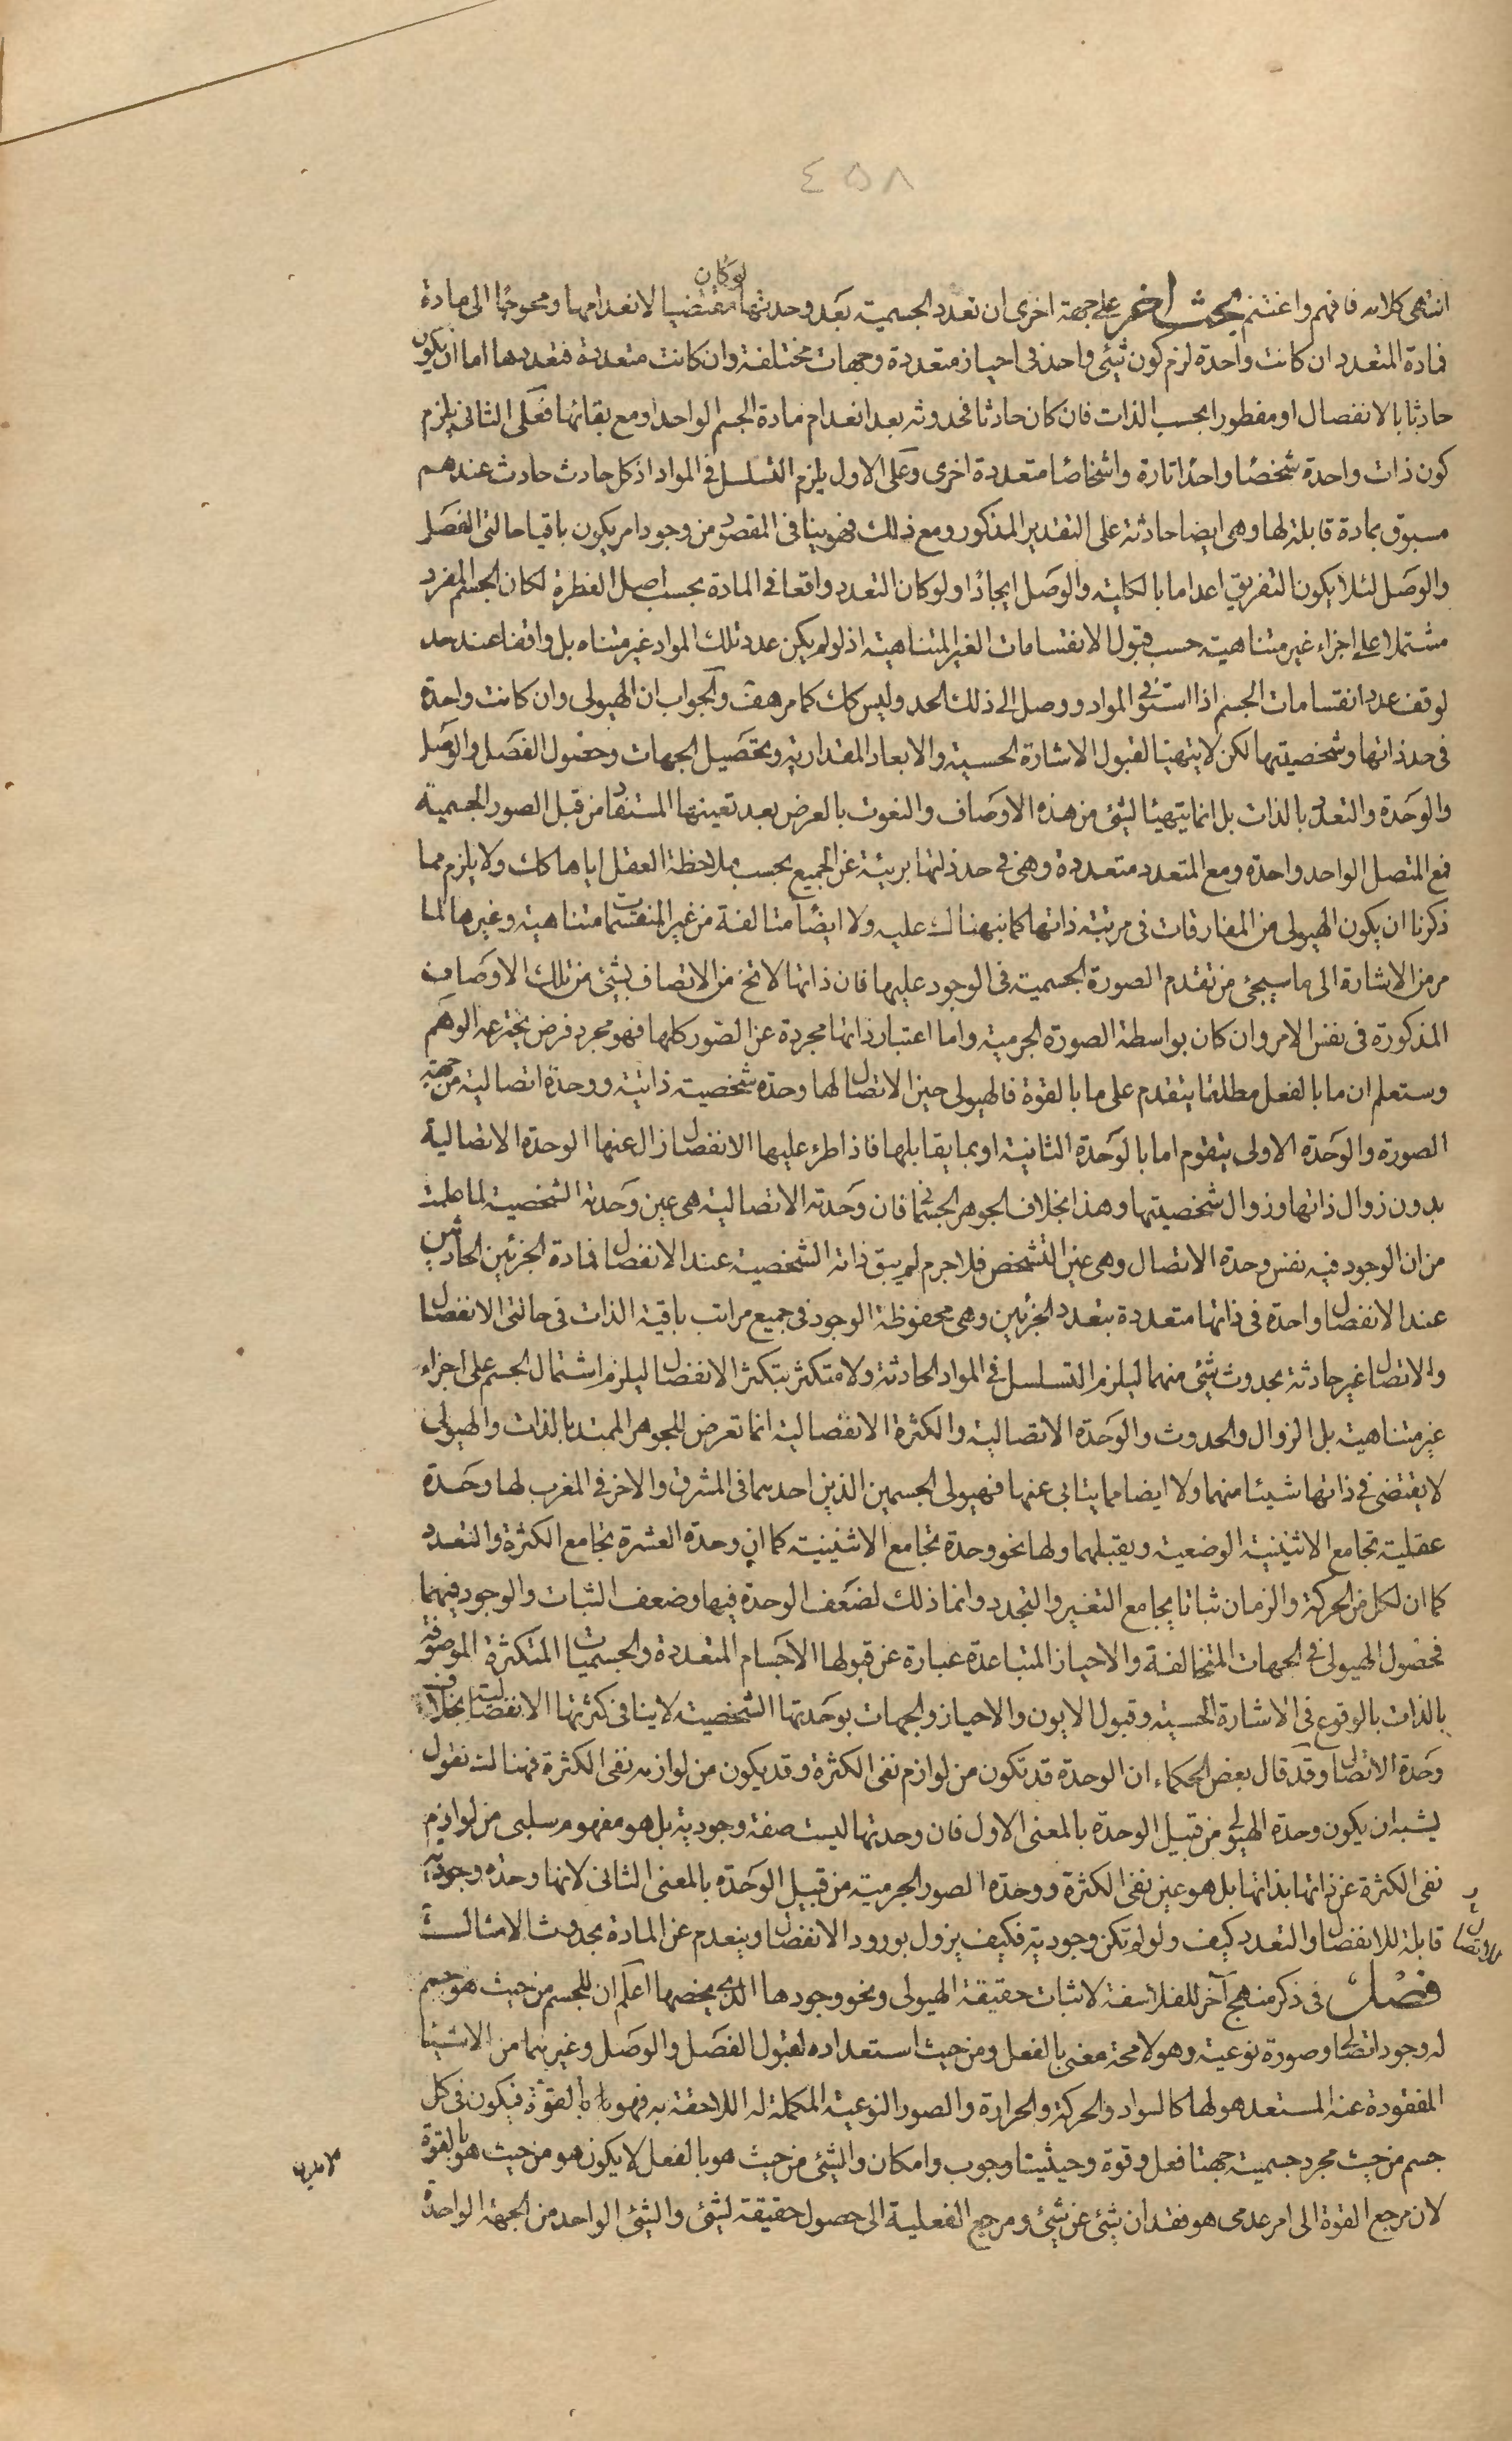 ٤٥٨
انتهى كلامه فافهم واغتنم بحث اخر على جهة اخرى ان تعدد الجسمية بعد وحدتها لو كان مقتضيا لانعدامها ومحوجا الى مادة
فمادة المتعدد ان كانت واحدة لزم كون شئ واحد فى احياز متعددة وجهات مختلفة وان كانت متعددة فتعددها اما ان يكون
حادثا بالانفصال او مفطورا بحسب الذات فان كان حادثا فحدوثه بعد انعدام مادة الجسم الواحد او مع بقائها فعلى الثانى يلزم
كون ذات واحدة شخصا واحدا تارة واشخاصا متعددة اخرى وعلى الاول يلزم التسلسل فى المواد اذ كل حادث حادث عندهم
مسبوق بمادة قابلة لها وهى ايضا حادثة على التقدير المذكور ومع ذلك فهو ينافى المقصود من وجود امر يكون باقيا حالتى الفصل
والوصل لئلا يكون التفريق اعداما بالكلية والوصل ايجادا ولو كان التعدد واقعا فى المادة بحسب اصل الفطرة لكان الجسم المفرد
مشتملا على اجزاء غير متناهية حسب قبول الانقسامات الغير المتناهية اذ لو لم يكن عدد تلك المواد غير متناه بل واقفا عند حد
لوقف عدد انقسامات الجسم اذا استوفى المواد ووصل الى ذلك الحد وليس كك كما مر هف والجواب ان الهيولى وان كانت واحدة
فى حد ذاتها وشخصيتها لكن لا يتهيئا لقبول الاشارة الحسية والابعاد المقدارية وتحصيل الجهات وحصول الفصل والوصل
والوحدة والتعدد بالذات بل انما يتهيئا لشئ من هذه الاوصاف والنعوت بالعرض بعد تعينها المستفاد من قبل الصور الجسمية
فمع المتصل الواحد واحدة ومع المتعدد متعددة وهى فى حد ذاتها بريئة عن الجميع بحسب ملاحظة العقل اياها كك ولا يلزم مما
ذكرنا ان يكون الهيولى من المفارقات فى مرتبة ذاتها كما نبهناك عليه ولا ايضا متالفة من غير المنقسمات متناهية وغيرها لما
مر من الاشارة الى ما سيجئ من تقدم الصورة الجسمية فى الوجود عليها فان ذاتها لا تخ من الاتصاف بشئ من تلك الاوصاف
المذكورة فى نفس الامر وان كان بواسطة الصورة الجرمية واما اعتبار ذاتها مجردة عن الصور كلها فهو مجرد فرض يخترعه الوهم
وستعلم ان ما بالفعل مطلقا يتقدم على ما بالقوة فالهيولى حين الاتصال لها وحدة شخصية ذاتية ووحدة اتصالية من جهة
الصورة والوحدة الاولى يتقوم اما بالوحدة الثانية او بما يقابلها فاذا طرء عليها الانفصال زال عنها الوحدة الاتصالية
بدون زوال ذاتها وزوال شخصيتها وهذا بخلاف الجوهر الجسمانى فان وحدته الاتصالية هى عين وحدته الشخصية لما علمت
من ان الوجود فيه نفس وحدة الاتصال وهى عين التشخص فلا جرم لم يبق ذاته الشخصية عند الانفصال فمادة الجزئين الحادثين
عند الانفصال واحدة فى ذاتها متعددة بتعدد الجزئين وهى محفوظة الوجود فى جميع مراتب باقية الذات فى حالتى الانفصال
والاتصال غير حادثة بحدوث شئ منهما ليلزم التسلسل فى المواد الحادثة ولا متكثر بتكثر الانفصال ليلزم اشتمال الجسم على اجزاء
غير متناهية بل الزوال والحدوث والوحدة الاتصالية والكثرة الانفصالية انما تعرض للجوهر الممتد بالذات والهيولى
لا يقتضى فى ذاتها شيئا منهما ولا ايضا مما يتابى عنها فهيولى الجسمين الذين احدهما فى المشرق والاخر فى المغرب لها وحدة
عقلية تجامع الاثنينية الوضعية ويقبلهما ولها نحو وحدة تجامع الاثنينية كما ان وحدة العشرة تجامع الكثرة والتعدد
كما ان لكل من الحركة والزمان ثباتا يجامع التغير والتجدد وانما ذلك لضعف الوحدة فيها وضعف الثبات والوجود فيهما
فحصول الهيولى فى الجهات المتخالفة والاحياز المتباعدة عبارة عن قبولها الاجسام المتعددة والجسميات المتكثرة الموصوفة
بالذات بالوقوع فى الاشارة الحسية وقبول الايون والاحياز والجهات بوحدتها الشخصية لا ينافى كثرتها الانفصالية بخلاف
وحدة الاتصال وقد قال بعض الحكماء ان الوحدة قد تكون من لوازم نفى الكثرة وقد يكون من لوازمه نفى الكثرة فهنالك نقول
يشبه ان يكون وحدة الهيولى من قبيل الوحدة بالمعنى الاول فان وحدتها ليست صفة وجودية بل هو مفهوم سلبى من لوازم
نفى الكثرة عن ذاتها بذاتها بل هو عين نفى الكثرة ووحدة الصور الجرمية من قبيل الوحدة بالمعنى الثانى لانها وحدة وجودية
قابلة للانفصال والتعدد كيف ولو لم تكن وجودية فكيف يزول بورود الانفصال وينعدم عن المادة بحدوث الامثال
فصل فى ذكر منهج آخر للفلاسفة لاثبات حقيقة الهيولى ونحو وجودها الذى يخصها اعلم ان للجسم من حيث هو جسم
له وجود اتصالى وصورة نوعية وهو لا محة معنى بالفعل ومن حيث استعداده لقبول الفصل والوصل وغيرهما من الاشياء
المفقودة عنه المستعد هو لها كالسواد والحركة والحرارة والصور النوعية المكملة له اللاحقة به فهو بالقوة فيكون فى كل
جسم من حيث مجرد جسمية جهتا فعل وقوة وحيثيتا وجوب وامكان والشئ من حيث هو بالفعل لا يكون هو من حيث هو بالقوة
لان مرجع القوة الى امر عدمى هو فقدان شئ عن شئ ومرجع الفعلية الى حصول حقيقة لشئ والشئ الواحد من الجهة الواحدة